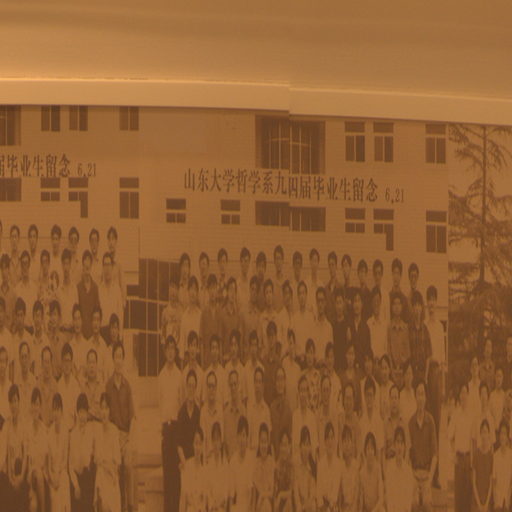 届毕业生留念 6.21
山东大学哲学系九四届毕业生留念 6.21